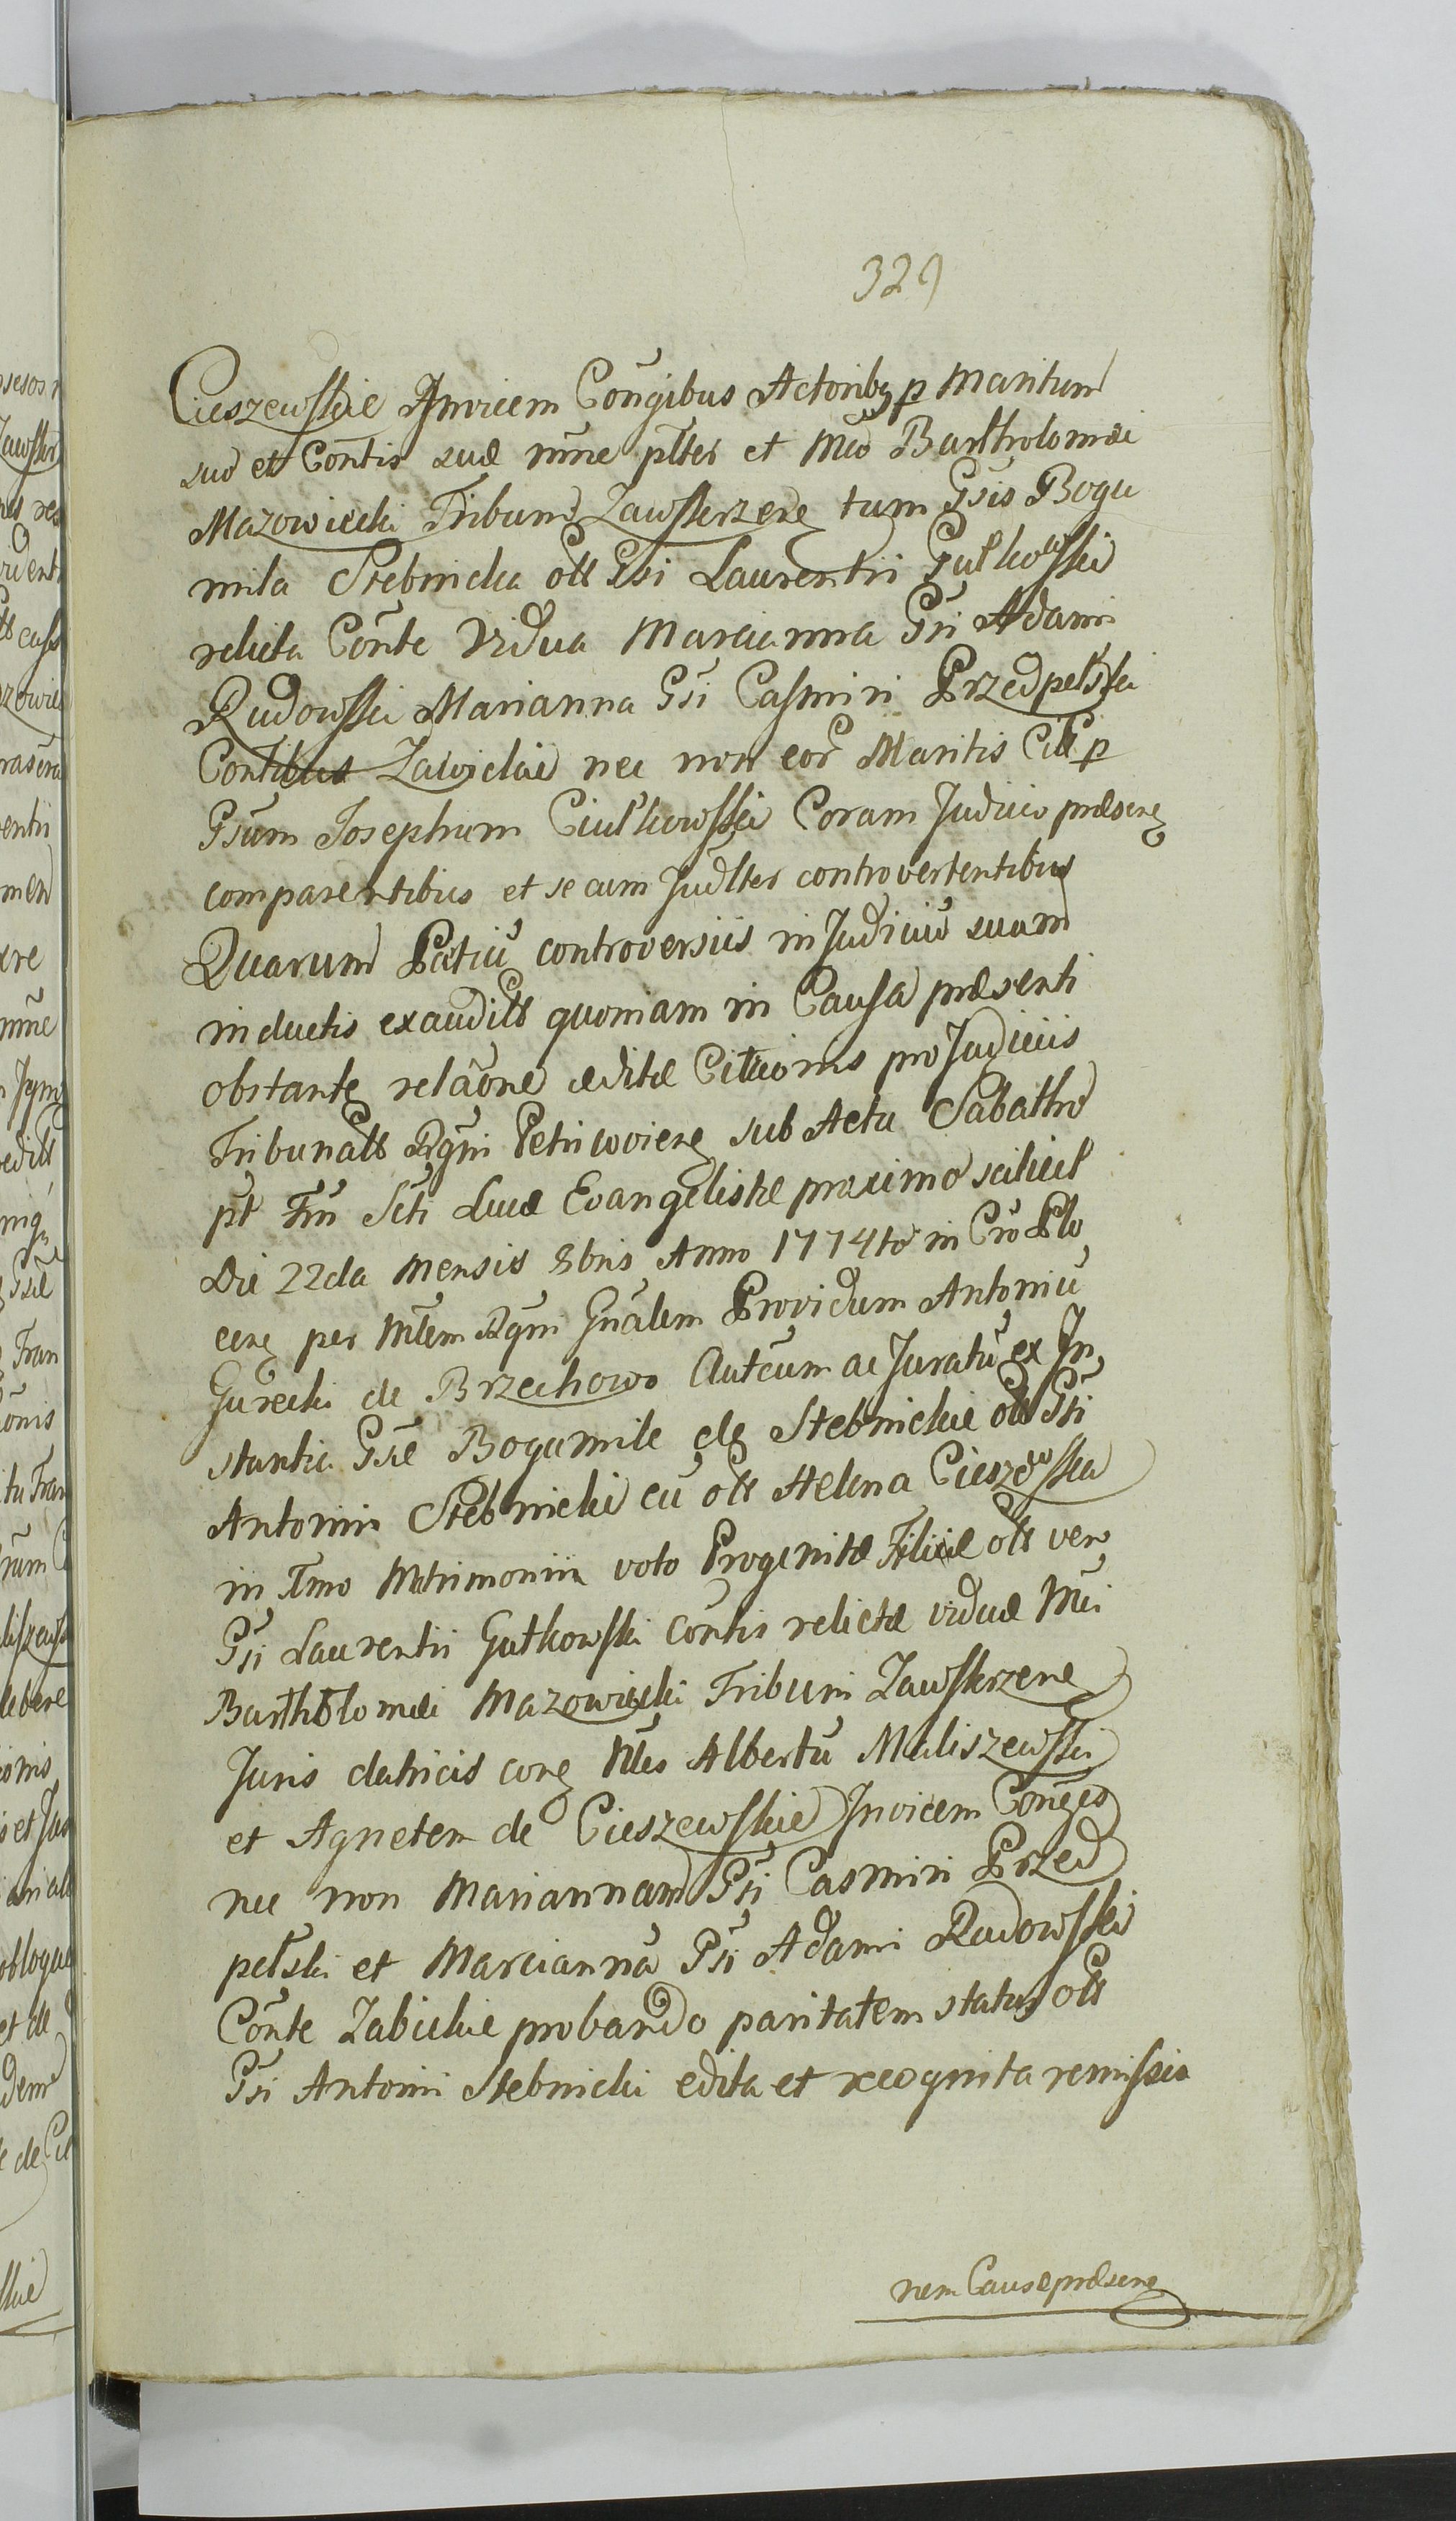 329
Cieszewskie Invicem Conĝibus Actoribq p Maritum
suo et Contis suæ mñe plter et Mco Bartholomæi
Mazowiecki Tribuno Zawskrzen tum Gsis Bogu
mila Stebnicka olt Gsi Laurentii Gutkowski
relicta Conte Vidua Marcianna Gsi Adami
Rudowski Marianna Gsi Casmiri Przedpełski
Contibus Zawickie nec non eor Maritis Citt p
Gsum Josephum Ciułkowski Coram Judicio præsenz
comparentibus et se cum Judlter controvertentibus
Quarum Patiū controversiis in Judicio suam
inductis exauditt quoniam in Causa præsenti
obstante relãone æditæ Citãonis pro Judiciis
Tribunalt Rgni Petricovien sub Actu Sabatho
pt Ftm Scti Lucæ Evangelistæ proximo scilicet
Die 22da Mensis 8bris Anno 1774to in Cro Plo
cen per Mlem Rgni Gnãlem Providum Antoniū
Gurecki de Brzechowo Autcum ac Juratū ex In
stantia Gsæ Bogumile de Stebnickie olt Gsi
Antonii Stebnicki cū olt Helena Cieszewska
in Imo Mtrimonii voto Progenitæ Filiæ olt vero
Gsi Laurentii Gutkowski Contis relictæ viduæ Mci
Bartholomæi Mazowiecki Tribuni Zawskrzen
Juris datricis con Nles Albertū Maliszewski
et Agnetem de Cieszewskie Invicem Conges
nec non Mariannam Gsi Casmiri Przed
pełski et Marciannã Gsi Adami Rudowski
Conte Zabickie probando paritatem status olt
Gsi Antonii Stebnicki edita et recognita remissio
nem Causæ præsen